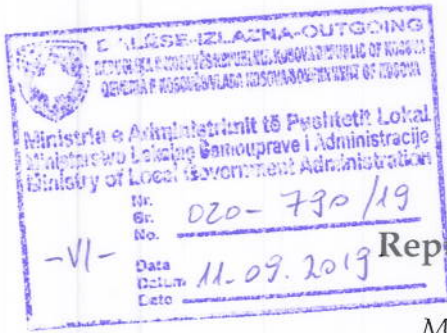 DALËSE-IZLAZNA-OUTGOING
REPUBLIKA E KOSOVËS/REPUBLIKA KOSOVA/REPUBLIC OF KOSOVA
QEVERIA E KOSOVËS/VLADA KOSOVA/GOVERNMENT OF KOSOVA
Ministria e Administrimit të Pushtetit Lokal
Ministarstvo Lokalne Samouprave i Administracije
Ministry of Local Government Administration
Nr.
Br.
No. 020-790/19
-VI-
Data
Datum 11.09.2019
Date
Rep
M